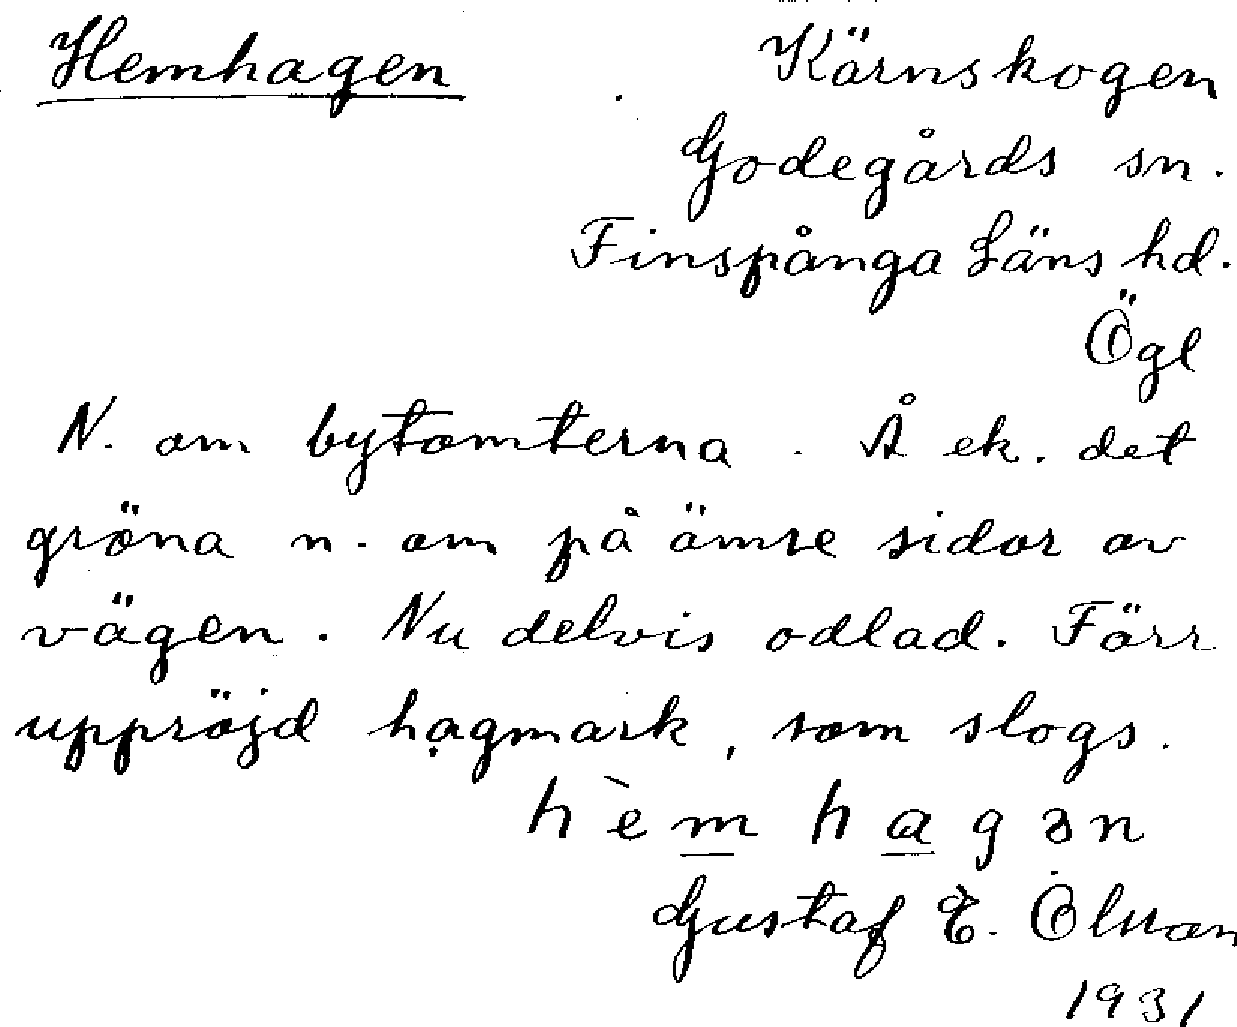 Hemhagen
Kärnskogen
Godegårds sn.
Finspånga Läns hd.
Ögl
N. om bytomterna. Å ek. det
gröna n. om på ömse sidor av
vägen. Nu delvis odlad. Förr
uppröjd hagmark, som slogs.
hèm hagən
Gustaf E. Olsson
1931